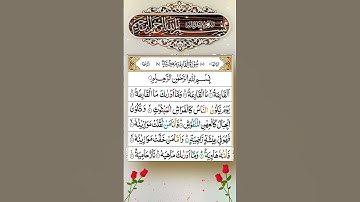 بِسْمِ اللهِ الرَّحْمٰنِ الرَّحِيْمِ
سُوْرَةُ الْقَارِعَةِ مَكِّيَّةٌ
بِسْمِ اللهِ الرَّحْمٰنِ الرَّحِيْمِ
اَلْقَارِعَةُ ۝ مَا الْقَارِعَةُ ۝ وَمَا اَدْرٰىكَ مَا الْقَارِعَةُ ۝
يَوْمَ يَكُوْنُ النَّاسُ كَالْفَرَاشِ الْمَبْثُوْثِ ۝ وَتَكُوْنُ
الْجِبَالُ كَالْعِهْنِ الْمَنْفُوْشِ ۝ فَاَمَّا مَنْ ثَقُلَتْ مَوَازِيْنُهٗ ۝
فَهُوَ فِيْ عِيْشَةٍ رَّاضِيَةٍ ۝ وَاَمَّا مَنْ خَفَّتْ مَوَازِيْنُهٗ ۝
فَاُمُّهٗ هَاوِيَةٌ ۝ وَمَا اَدْرٰىكَ مَاهِيَهْ ۝ نَارٌ حَامِيَةٌ ۝